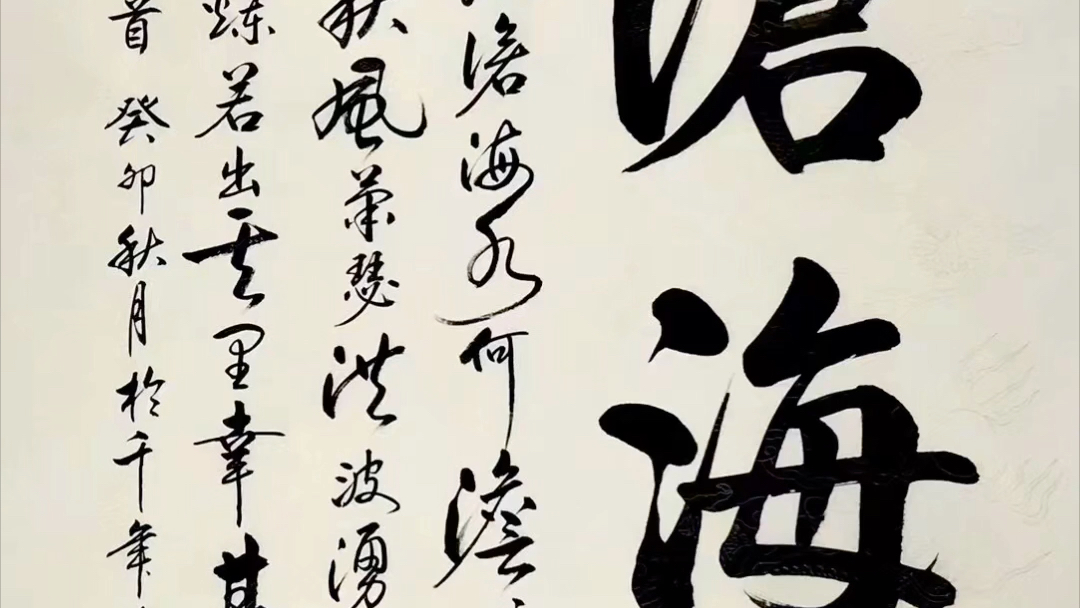 滄海
滄海水何澹
秋風蕭瑟洪波湧
若出其里幸甚
首 癸卯秋月於千年